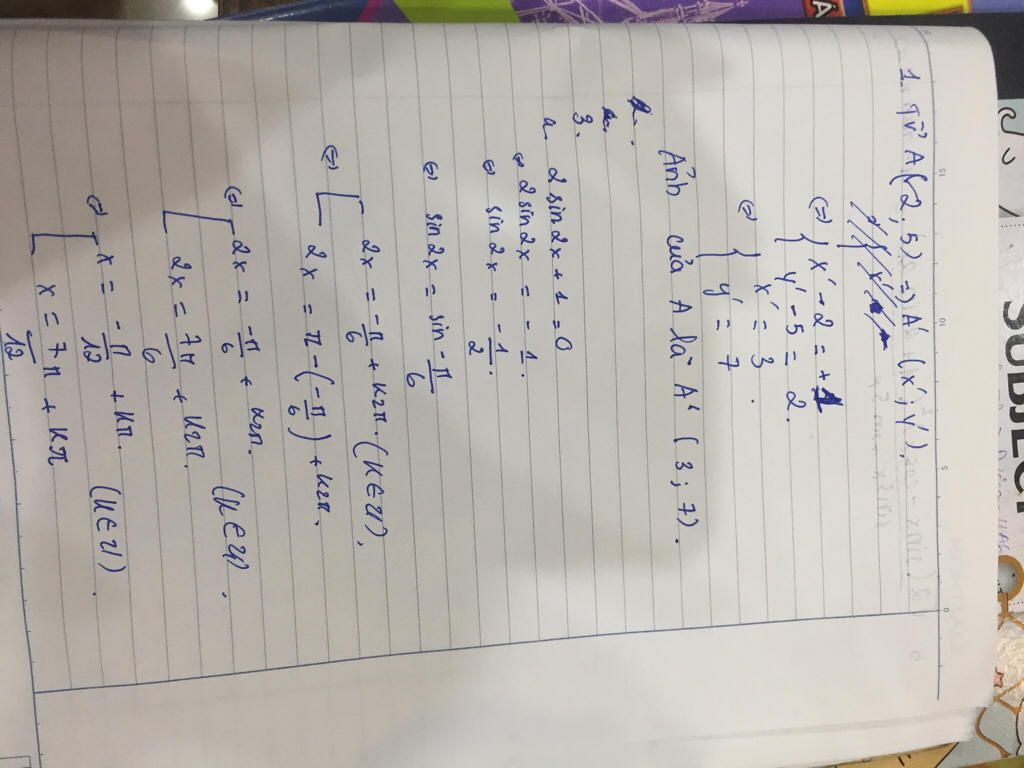 1. TV⃗ A(2, 5) => A' (x', y').
<=> { x' - 2 = +1
y' - 5 = 2.
<=> { x' = 3
y' = 7
Ảnh của A là A' (3 ; 7).
3.
a. 2 sin 2x + 1 = 0
<=> 2 sin 2x = -1.
<=> sin 2x = -1/2.
<=> sin 2x = sin -π/6
<=> [ 2x = -π/6 + k2π. (k ∈ Z),
2x = π - (-π/6) + k2π.
<=> [ 2x = -π/6 + k2π. (k ∈ Z).
2x = 7π/6 + k2π.
<=> [ x = -π/12 + kπ. (k ∈ Z).
x = 7π/12 + kπ
SUBJECT